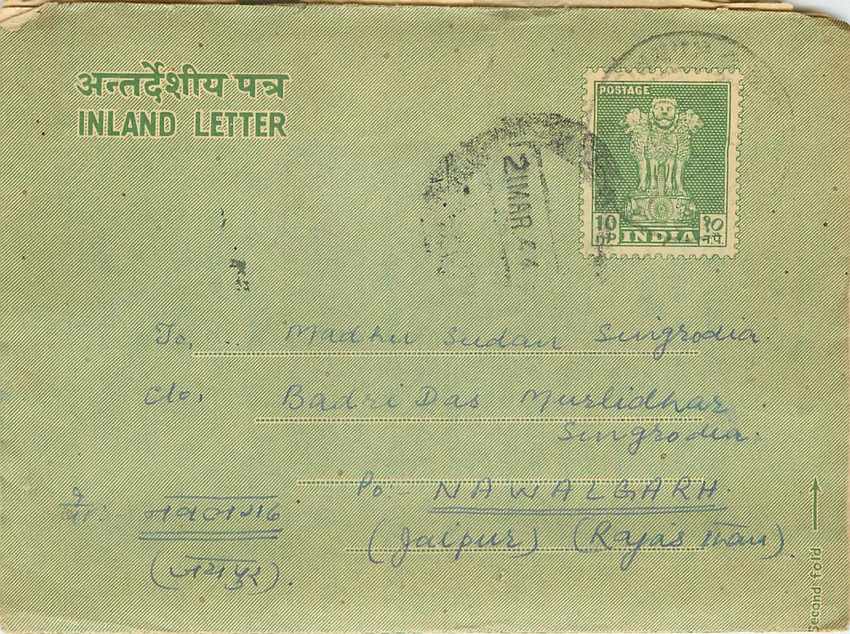 अन्तर्देशीय पत्र
INLAND LETTER
POSTAGE
10 १०
nP न.पै.
INDIA
21 MAR 64
To, Madhu Sudan Singrodia.
C/o, Badri Das Murlidhar
Singrodia.
Po:- NAWALGARH.
(Jaipur) (Rajasthan).
नवलगढ
(जयपुर).
Second fold